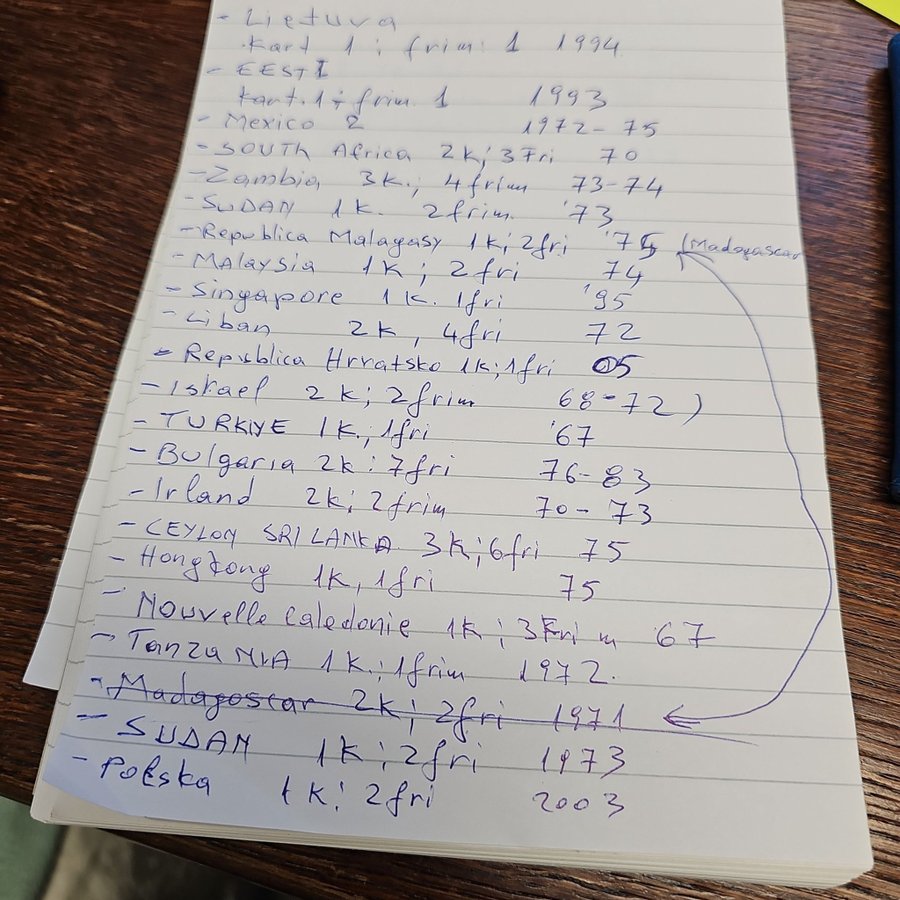 - Lietuva
kart 1 ; frim. 1 1994
- EESTI
kart. 1 + frim. 1 1993
- Mexico 2 1972-75
- SOUTH Africa 2k; 3Fri 70
- Zambia 3k.; 4frim 73-74
- SUDAN 1k. 2frim. '73
- Republica Malagasy 1k; 2fri '75 (Madagascar
- MAlaysia 1k; 2fri 74
- Singapore 1k. 1fri '95
- Liban 2k, 4fri 72
- Republica Hrvatsko 1k; 1fri 05
- Israel 2k; 2frim 68-72)
- TURKIYE 1k.; 1fri '67
- Bulgaria 2k: 7fri 76-83
- Irland 2k; 2frim 70-73
- CEYLON SRI LANKA 3k; 6fri 75
- Hongkong 1k, 1fri 75
- Nouvelle Caledonie 1k; 3Frim 67
- TanzaNIA 1k.; 1frim 1972.
- Madagascar 2k; 2fri 1971
- SUDAN 1k; 2fri 1973
- Polska 1k; 2fri 2003